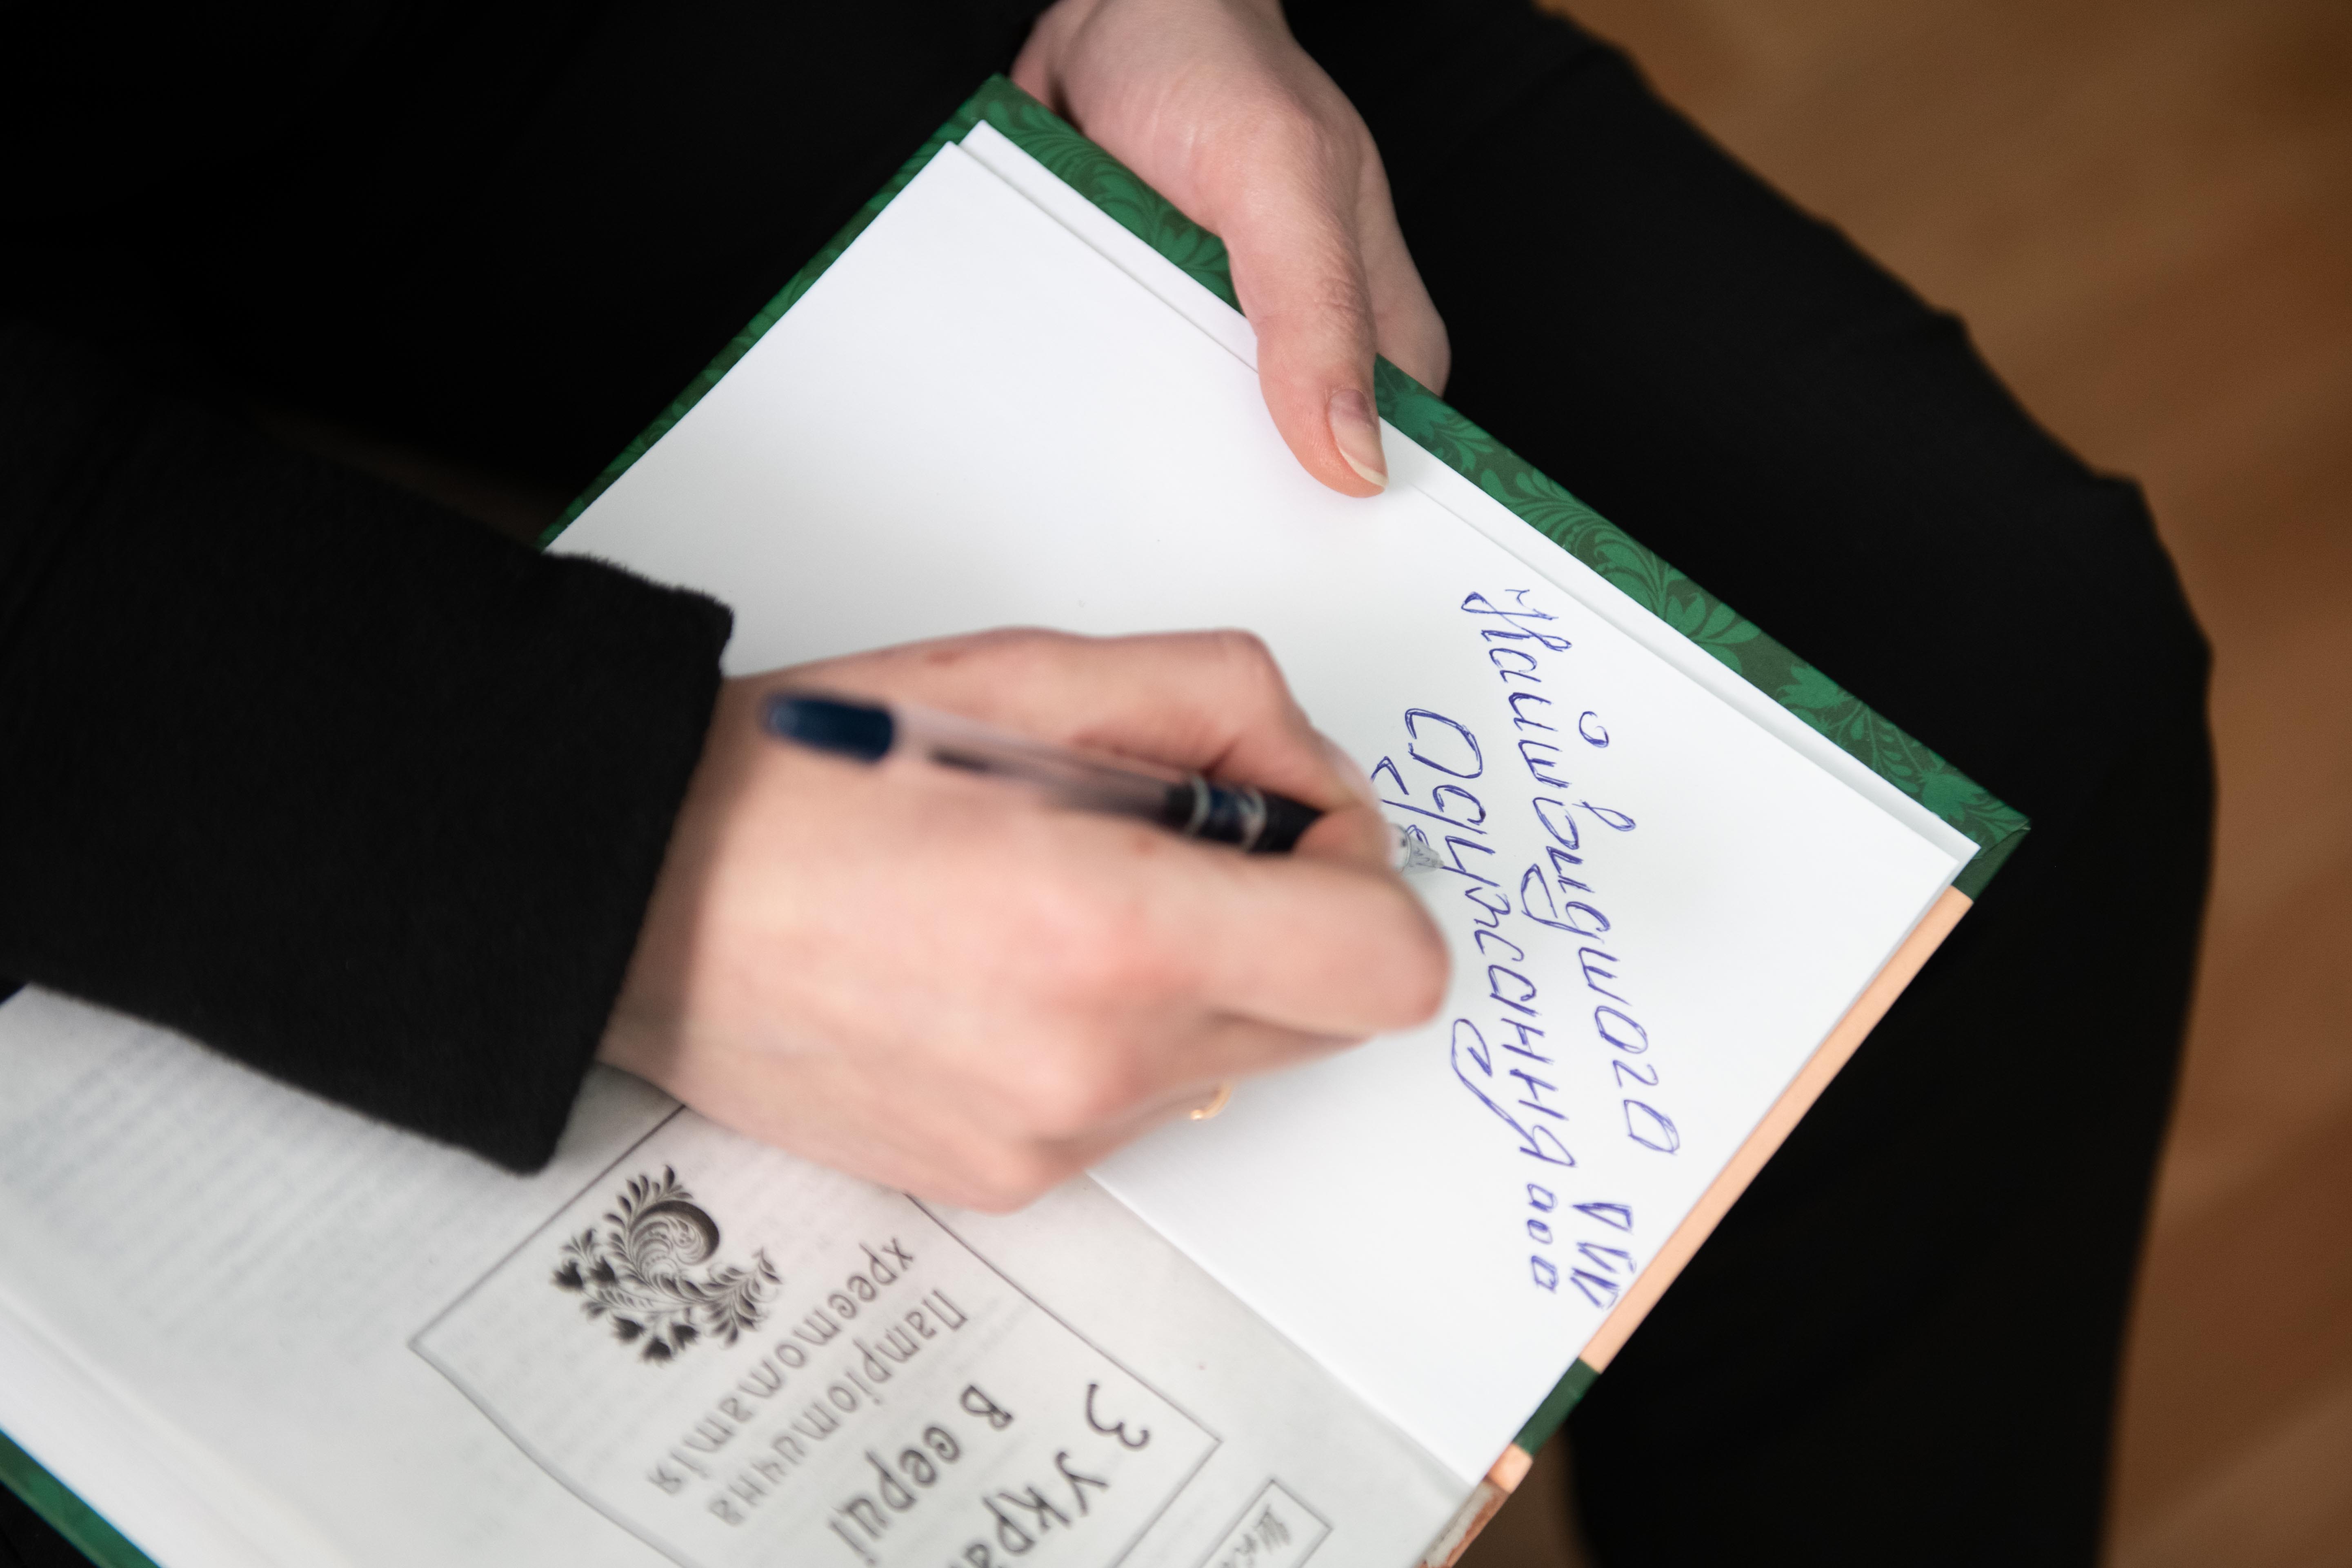 Найшвидшого !!!
Одужання...
З Укра
в серці
Патріотична
хрестоматія